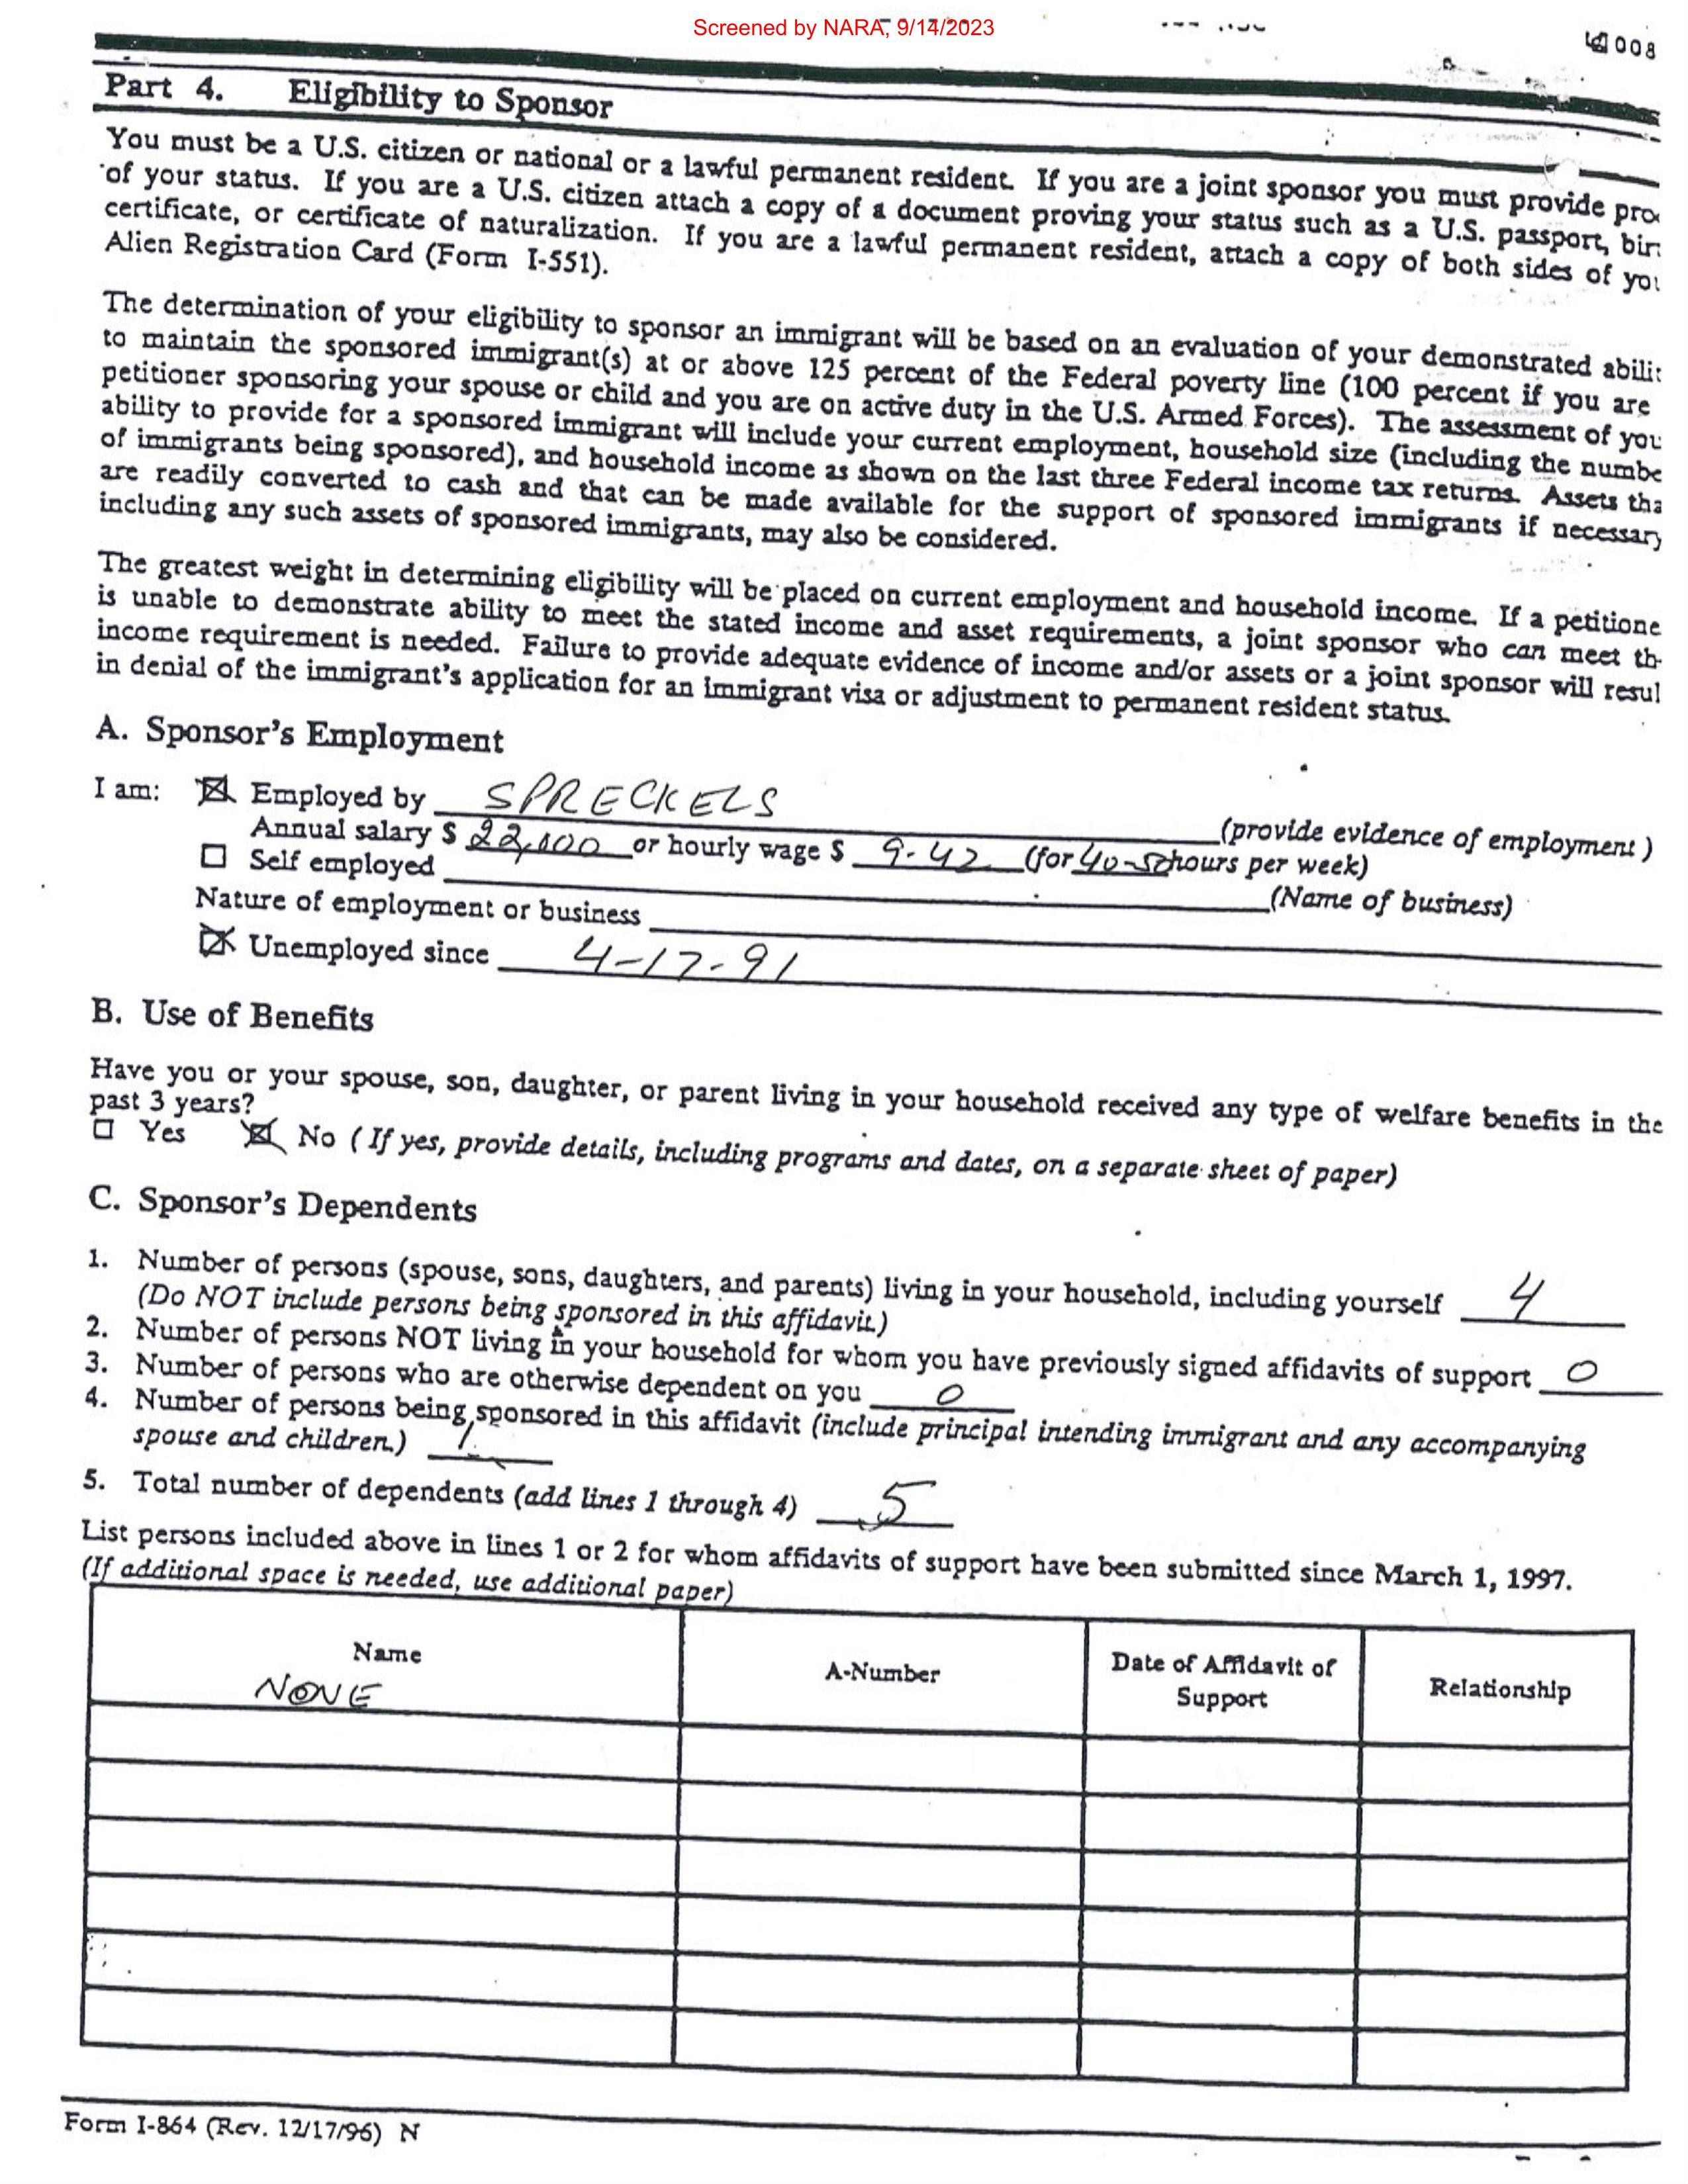 Screened by NARA, 9/14/2023
008
Part 4. Eligibility to Sponsor
You must be a U.S. citizen or national or a lawful permanent resident. If you are a joint sponsor you must provide
of your status. If you are a U.S. citizen attach a copy of a document proving your status such as a U.S. passport,
certificate, or certificate of naturalization. If you are a lawful permanent resident, attach a copy of both sides of
Alien Registration Card (Form I-551).
The determination of your eligibility to sponsor an immigrant will be based on an evaluation of your demonstrated
to maintain the sponsored immigrant(s) at or above 125 percent of the Federal poverty line (100 percent if you are
petitioner sponsoring your spouse or child and you are on active duty in the U.S. Armed Forces). The assessment of
ability to provide for a sponsored immigrant will include your current employment, household size (including the
of immigrants being sponsored), and household income as shown on the last three Federal income tax returns. Assets
are readily converted to cash and that can be made available for the support of sponsored immigrants if necessary
including any such assets of sponsored immigrants, may also be considered.
The greatest weight in determining eligibility will be placed on current employment and household income. If a petitione
is unable to demonstrate ability to meet the stated income and asset requirements, a joint sponsor who can meet
income requirement is needed. Failure to provide adequate evidence of income and/or assets or a joint sponsor will
in denial of the immigrant's application for an immigrant visa or adjustment to permanent resident status.
A. Sponsor's Employment
I am: ☒ Employed by SPRECKELS (provide evidence of employment)
Annual salary $ or hourly wage $ 9.42 (for 40-50 hours per week)
☐ Self employed (Name of business)
Nature of employment or business
☒ Unemployed since 4-17-91
B. Use of Benefits
Have you or your spouse, son, daughter, or parent living in your household received any type of welfare benefits in the
past 3 years?
☐ Yes ☒ No (If yes, provide details, including programs and dates, on a separate sheet of paper)
C. Sponsor's Dependents
1. Number of persons (spouse, sons, daughters, and parents) living in your household, including yourself 4
(Do NOT include persons being sponsored in this affidavit.)
2. Number of persons NOT living in your household for whom you have previously signed affidavits of support 0
3. Number of persons who are otherwise dependent on you 0
4. Number of persons being sponsored in this affidavit (include principal intending immigrant and any accompanying
spouse and children.) 1
5. Total number of dependents (add lines 1 through 4) 5
List persons included above in lines 1 or 2 for whom affidavits of support have been submitted since March 1, 1997.
(If additional space is needed, use additional paper)
Name A-Number Date of Affidavit of Support Relationship
NONE
Form I-864 (Rev. 12/17/96) N